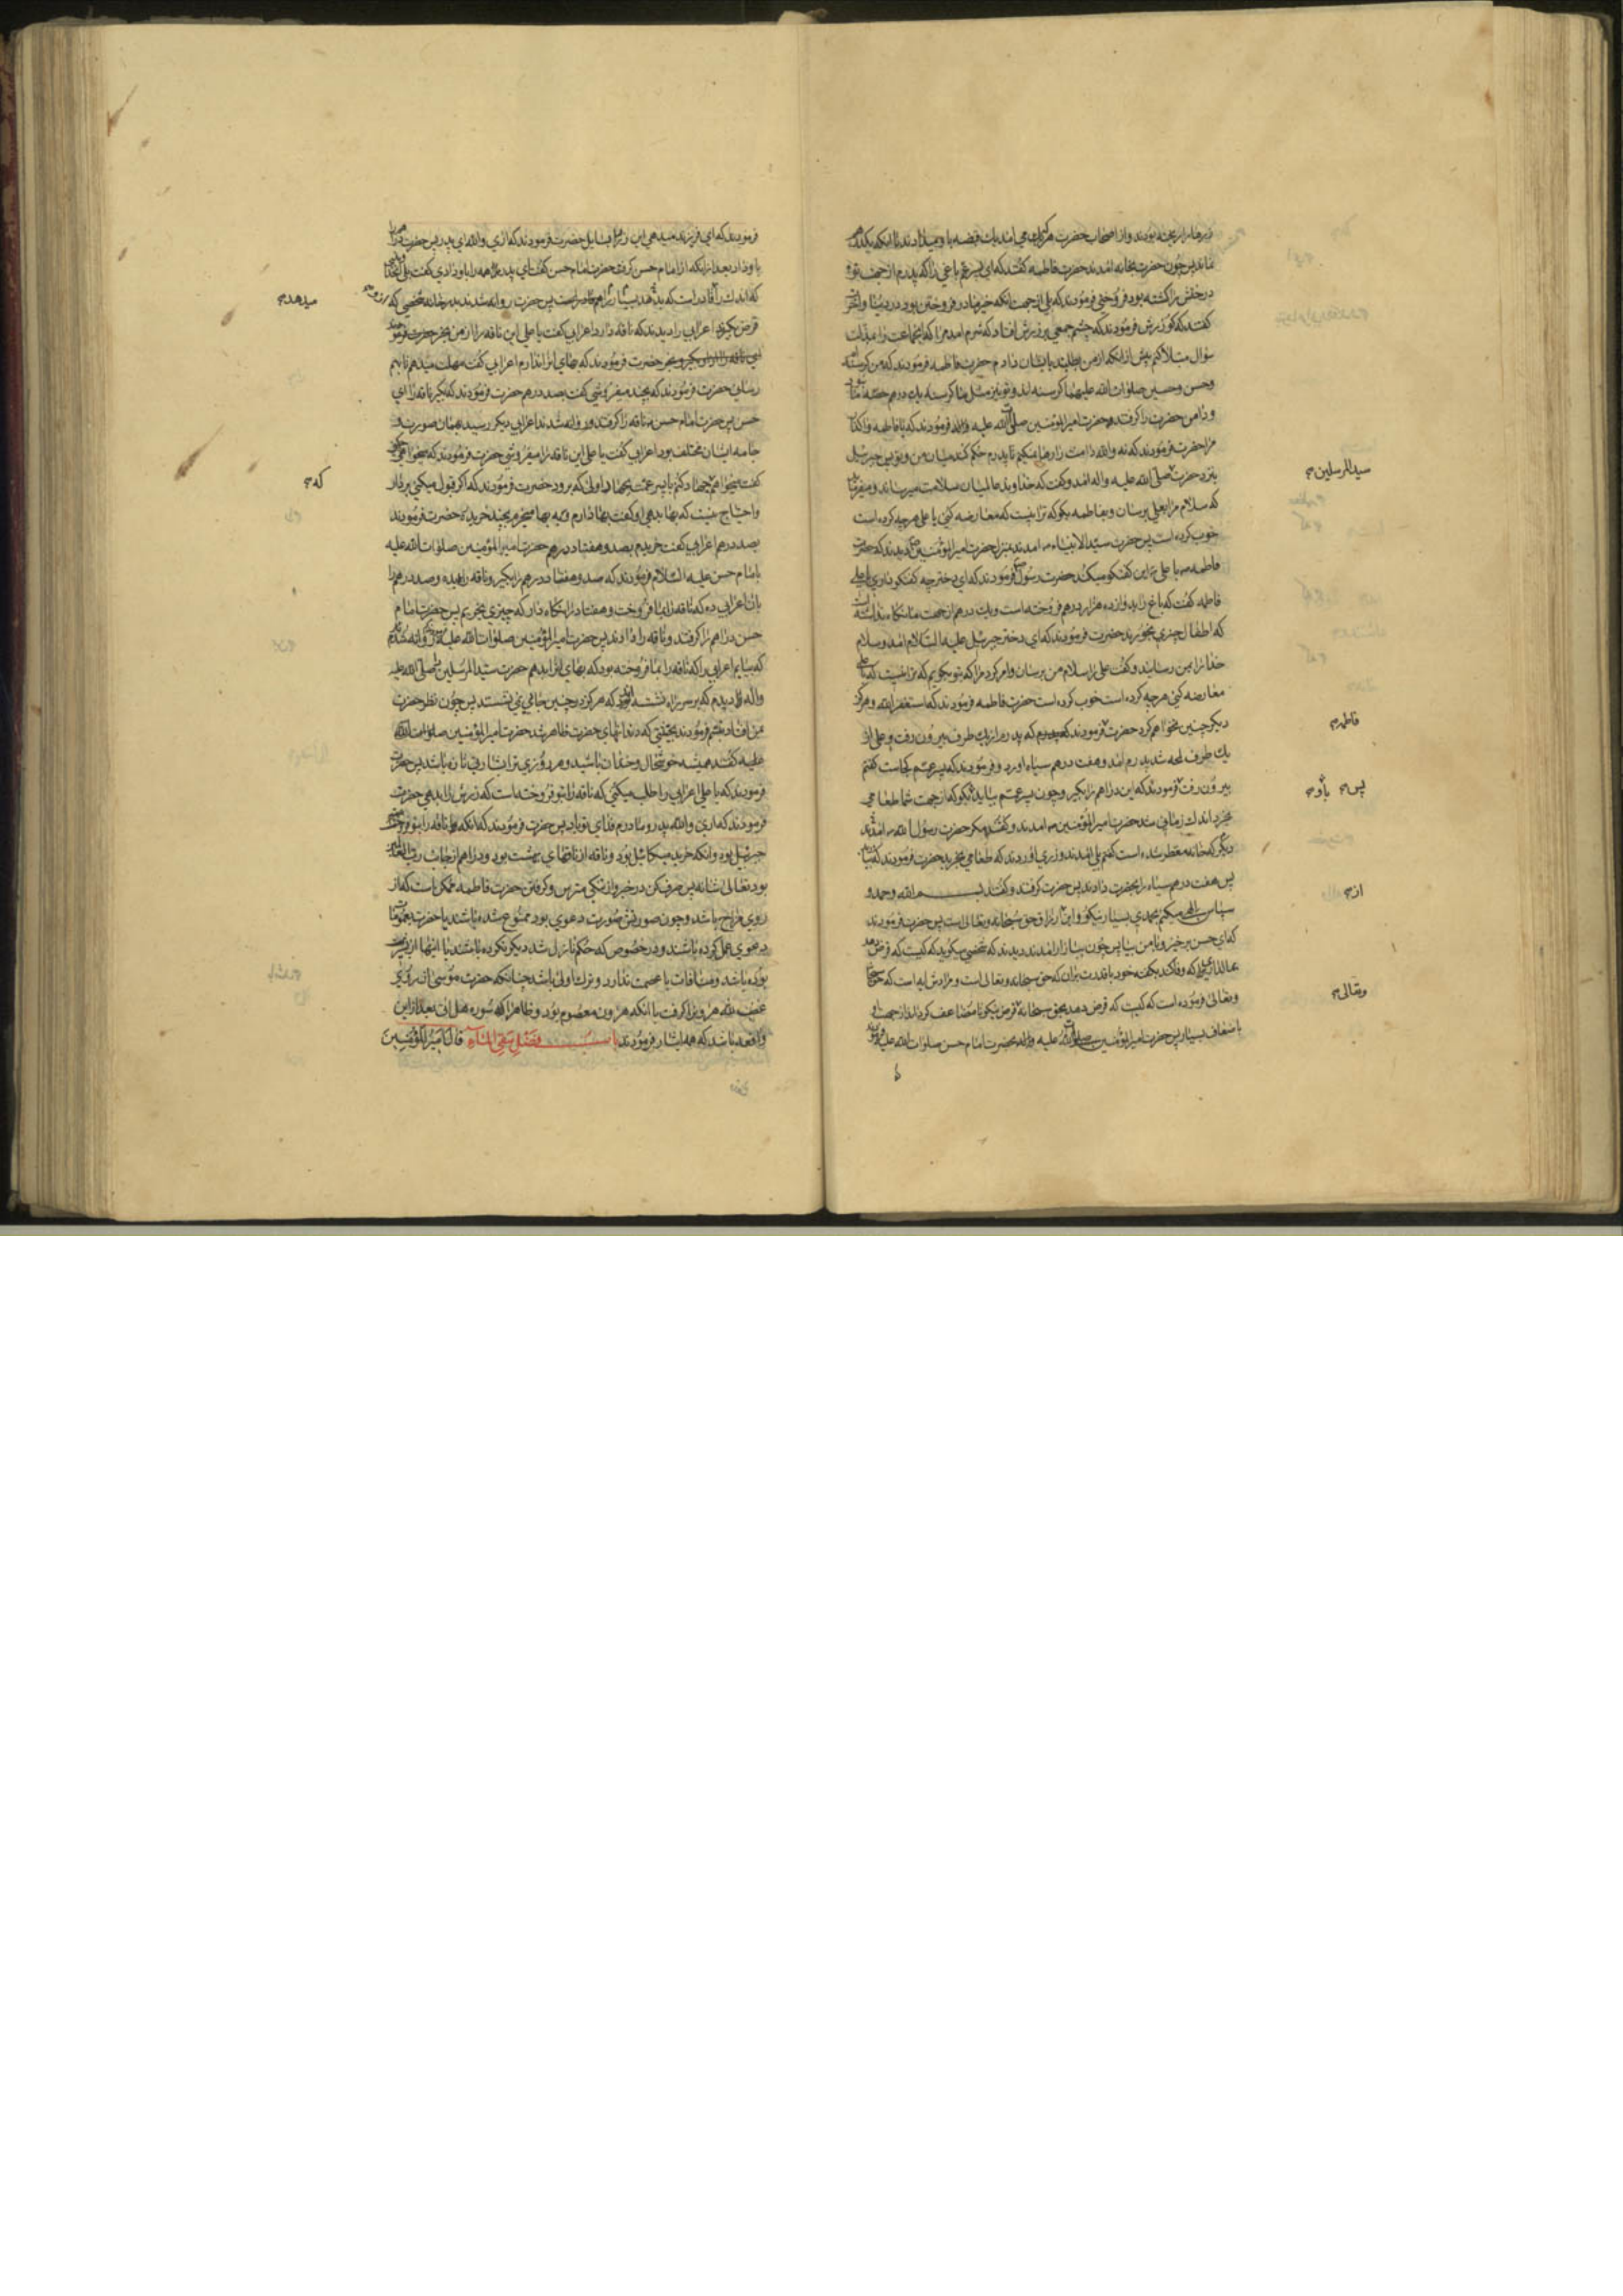 زرها را ریخته بودند و از اصحاب حضرت هر کس می آمد یک قبضه باو میدادند تا آنکه یکدرهم
نماند پس چون حضرت بخانه آمدند حضرت فاطمه گفتند که ای پسر عم باغی را که پدرم از جهت تو
درختش را کشته بود فروختی فرمودند که بلی از جهت آنکه خیر ما در فروختن بود در دنیا و آخرت
گفتند که کو زرش فرمودند که چشم جمعی بر زرش افتاد که شرم آمد مرا که آنجماعت را بمذلت
سؤال مبتلا کنم پیش از آنکه از من بطلبند بایشان دادم حضرت فاطمه فرمودند که من گرسنه ام
و حسن و حسین صلوات الله علیهما گرسنه اند و تو نیز مثل ما گرسنه یک درهم حصه ما
و دامن حضرت را گرفتند حضرت امیر المؤمنین صلی الله علیه و آله فرمودند که یا فاطمه واگذار
مرا حضرت فرمودند که نه والله دامنت را رها نمیکنم تا پدرم حکم کند میان من و تو پس جبرئیل
بنزد حضرت صلی الله علیه و اله آمد و گفت که خداوند عالمیان سلامت میرساند و میفرماید
سید المرسلین
که سلام مرا بعلی برسان و بفاطمه بگو که ترا نیست که معارضه کنی با علی هر چه کرده است
خوب کرده است پس حضرت سید الانبیاء ص آمدند بمنزل حضرت امیر المؤمنین دیدند که حضرت
فاطمه با علی این گفتگو میکند حضرت رسول فرمودند که ای دختر چه گفتگو داری با علی
فاطمه گفت که باغ را بدوازده هزار درهم فروخته است و یک درهم از جهت ما نگاه نداشته
که اطفال چیزی بخورند حضرت فرمودند که ای دختر جبرئیل علیه السلام آمد و سلام
خدا را بمن رسانید و گفت علی را سلام من برسان و امر کرد مرا که بتو بگویم که ترا نیست که با علی
معارضه کنی هر چه کرده است خوب کرده است حضرت فاطمه فرمودند که استغفر الله و هرگز
دیگر چنین نخواهم کرد حضرت فرمودند که پدرم از یک طرف بیرون رفت و علی از
فاطمه
یک طرف لمحه شد پدرم آمد و هفت درهم سیاه آورد و فرمودند که پسر عمم کجاست گفتم
بیرون رفت فرمودند که این دراهم را بگیر و چون پسر عمم بیاید بگو که از جهت شما طعامی
پس باو
بخرد اندک زمانی شد حضرت امیر المؤمنین آمدند و گفتند مگر حضرت رسول الله آمدند
دیگر که خانه معطر شده است گفتم بلی آمدند و زری آوردند که طعامی بخرید حضرت فرمودند که بیار
پس هفت درهم سیاه را بحضرت دادند پس حضرت گرفتند و گفتند بسم الله و حمد و
از
سپاس الهی میکنم بحمدی بسیار نیکو و این از رزاق حق سبحانه و تعالی است پس حضرت فرمودند
که ای حسن برخیز و با من بیا پس چون ببازار آمدند دیدند که شخصی میگوید که کیست که قرض دهد
بمالداری که وفا کند بگفته خود با قدرت بر آن که حق سبحانه و تعالی است و مرادش آیه است که حق سبحانه
و تعالی فرموده است که کیست که قرض دهد بحق سبحانه قرض نیکو تا مضاعف گرداند از جهت او
وتعالی
باضعاف بسیار پس حضرت امیر المؤمنین صلوات الله علیه و آله بحضرت امام حسن صلوات الله علیه
فرمودند که ای فرزند میدهی این زر را بسایل حضرت فرمودند که آری والله ای پدر پس حضرت
باو داد بعد از آنکه از امام حسن گرفت حضرت امام حسن گفت ای پدر همه را باو دادی گفت بلی
که اندک را قادر است که بسیار را هم پس حضرت روانه شدند بدر خانه شخصی که
میدهد
قرض بگیرد اعرابی را دیدند که ناقه دارد اعرابی گفت یا علی این ناقه را از من بخر حضرت فرمود
حضرت فرمودند که بهای انرا ندارم اعرابی گفت مهلت میدهم تا بهم
رسانی حضرت فرمودند که بچند میفروشی گفت بصد درهم حضرت فرمودند که بگیر ناقه را ای
حسن پس حضرت امام حسن ناقه را گرفتند و روانه شدند اعرابی دیگر رسید بهمان صورت و
جامه ایشان مختلف بود اعرابی گفت یا علی این ناقه را میفروشی حضرت فرمودند که میخواهی
گفت میخواهم جهاد کنم با پسر عمت بجهاد اولی که برود حضرت فرمودند که اگر قبول میکنی بردار
که
و احتیاج نیست که بها بدهی او گفت بها دارم و به بها میخرم بچند خریده حضرت فرمودند
بصد درهم اعرابی گفت خریدم بصد و هفتاد درهم حضرت امیر المؤمنین صلوات الله علیه
بامام حسن علیه السلام فرمودند که صد و هفتاد درهم را بگیر و ناقه را بده و صد درهم را
بان اعرابی ده که ناقه را بما فروخت و هفتاد را نگاه دار که چیزی بخریم پس حضرت امام
حسن دراهم را گرفتند و ناقه را دادند پس حضرت امیر المؤمنین صلوات الله علیه روانه شدم
که بیابم اعرابی را که ناقه را بما فروخته بود که بهای انرا بدهم حضرت سید المرسلین صلی الله علیه
و اله را دیدم که بر سر راه نشسته که هرگز در چنین جایی نمی نشستند پس چون نظر حضرت
بمن افتاد تبسم فرمودند بحیثیتی که دندانهای حضرت ظاهر شد حضرت امیر المؤمنین صلوات الله
علیه گفتند همیشه خوشحال و خندان باشید و هر روزی ترا بشارتی تازه باشد پس حضرت
فرمودند که یا علی اعرابی را طلب میکنی که ناقه را بتو فروخته است که زرش را بدهی حضرت
فرمودند که آری والله پدر و مادرم فدای تو باد پس حضرت فرمودند که آنکه ناقه را بتو فروخت
جبرئیل بود و آنکه خرید میکائیل بود و ناقه از ناقهای بهشت بود و دراهم از جانب رب العالمین
بود تعالی شانه پس صرف کن در خیر و از تنگی مترس و گرفتن حضرت فاطمه ممکن است که از
روی مزاح باشد و چون صورتش صورت دعوی بود ممنوع شده باشد یا حضرت بعمومات
دعوی عمل کرده باشند و در خصوص که حکم نازل شد دیگر نکرده باشند یا اینها از
بوده باشد و منافات با عصمت ندارد و ترک اولی باشد چنانکه حضرت موسی از روی
غضب لله هرون را گرفت با آنکه هرون معصوم بود و ظاهرا که سوره هل اتی بعد از این
واقعه باشد که همه ایثار فرمودند باب فضل سقی الماء قال امیر المؤمنین